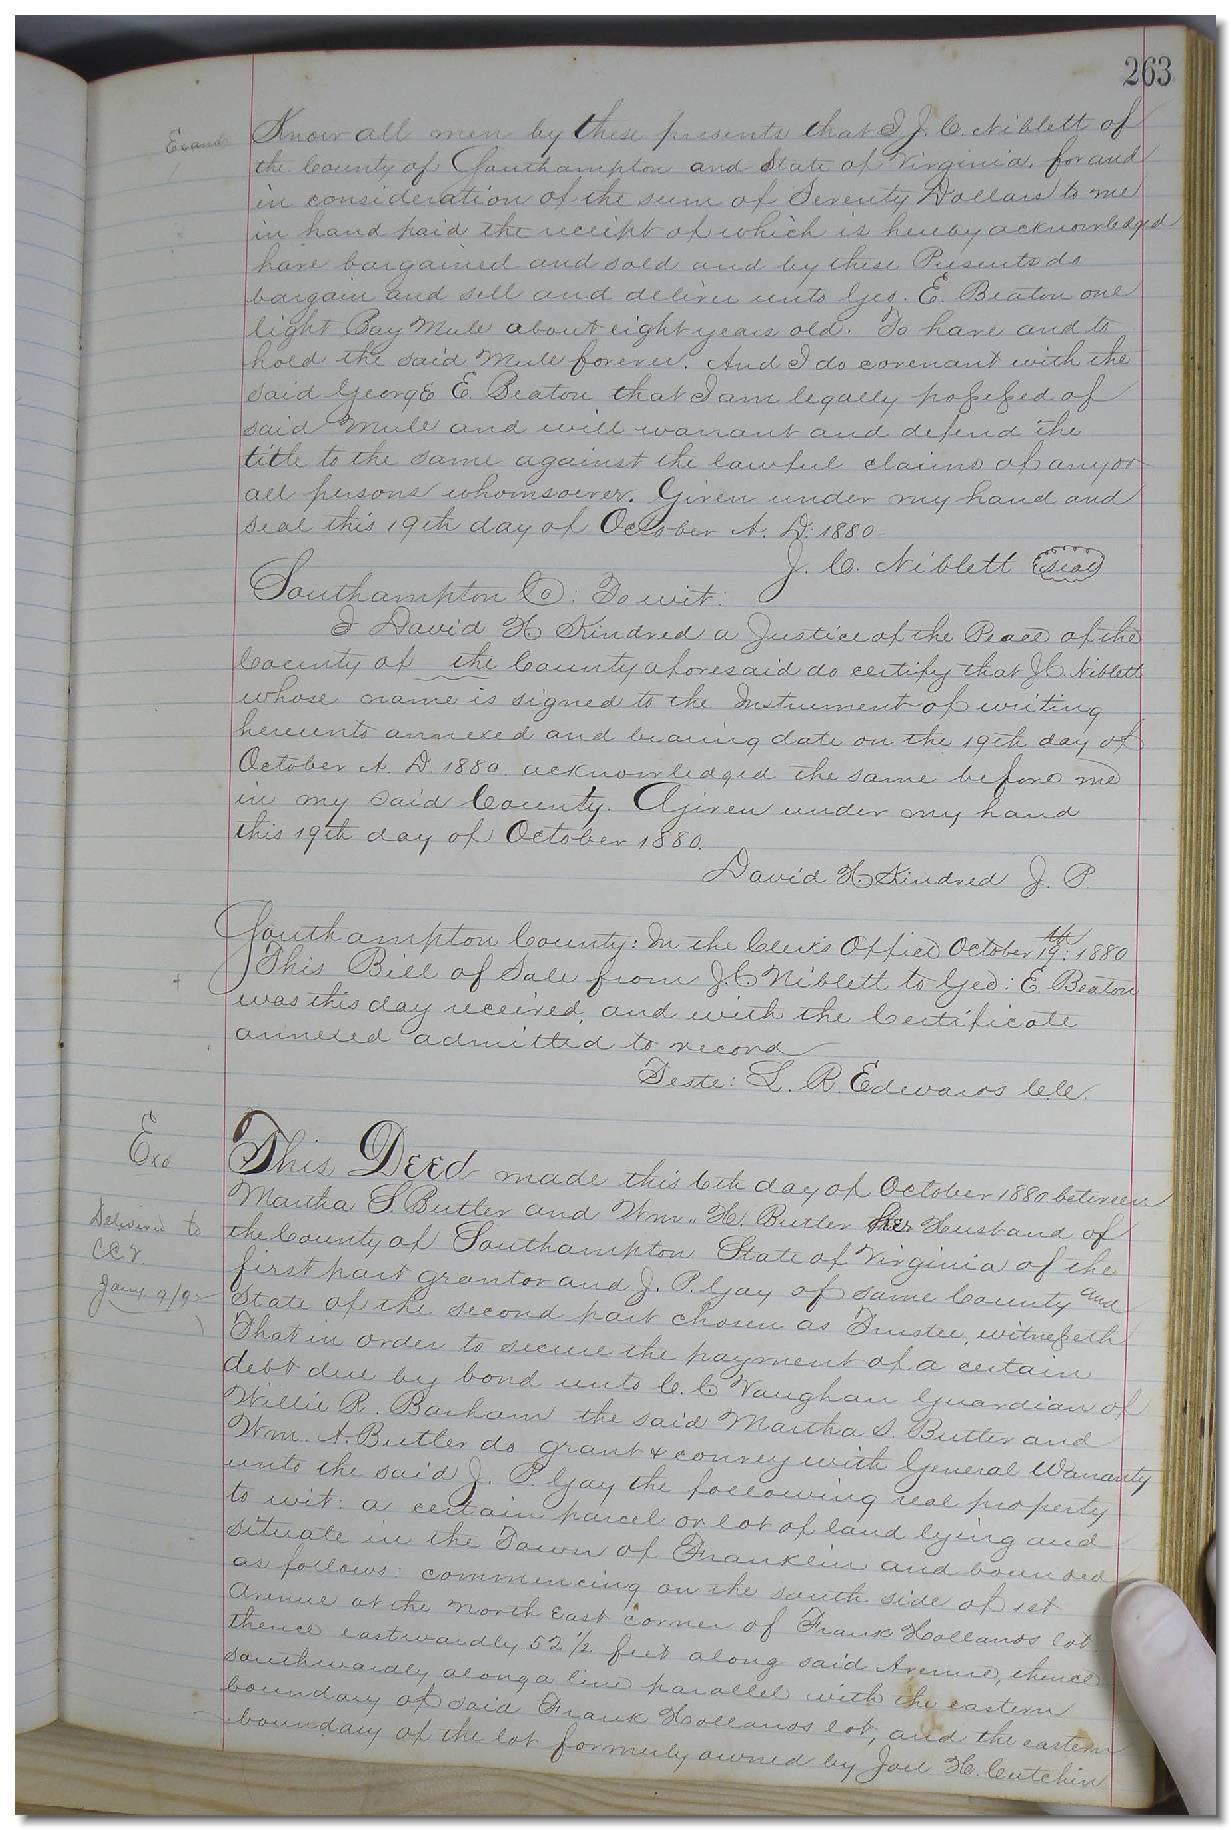 263
Know all men by these presents that I J. C. Niblett of
the County of Southampton and State of Virginia, for and
in consideration of the sum of Seventy Dollars to me
in hand paid the receipt of which is hereby acknowledged
have bargained and sold and by these Presents do
bargain and sell and deliver unto Geo. E. Beaton one
light Bay Mule about eight years old. To have and to
hold the said Mule forever. And I do covenant with the
said George E. Beaton that I am legally possessed of
said Mule and will warrant and defend the
title to the same against the lawful claims of any or
all persons whomsoever. Given under my hand and
seal this 19th day of October A. D. 1880
J. C. Niblett seal
Southampton Co: To wit:
I David H Kindred a Justice of the Peace of the
County of the County aforesaid do certify that J C Niblett
whose name is signed to the Instrument of writing
hereunto annexed and bearing date on the 19th day of
October A. D 1880 acknowledged the same before me
in my said County. Given under my hand
this 19th day of October 1880.
David H. Kindred J. P
Southampton County: In the Clerk's Office October 19th: 1880
This Bill of Sale from J. C Niblett to Geo: E Beaton
was this day received, and with the Certificate
annexed admitted to record
Teste: L. R. Edwards C.C.
Exd
Delivered to
C.C.V.
Jany 9/92
This Deed made this 6th day of October 1880 between
Martha S. Butler and Wm. H. Butler her Husband of
the County of Southampton State of Virginia of the
first part grantor and J. P. Gay of same County and
State of the second part chosen as Trustee, witnesseth
That in order to secure the payment of a certain
debt due by bond unto C. C Vaughan Guardian of
Willie R. Barham the said Martha S. Butler and
Wm. A. Butler do grant & convey with General Warranty
unto the said J. P. Gay the following real property
to wit: a certain parcel or lot of land lying and
situate in the Town of Franklin and bounded
as follows: commencing on the south side of 1st
Avenue at the North East corner of Frank Hollands lot
thence eastwardly 52 1/2 feet along said Avenue, thence
southwardly along a line parallel with the eastern
boundary of said Frank Hollands lot, and the eastern
boundary of the lot formerly owned by Joel H. Cutchin